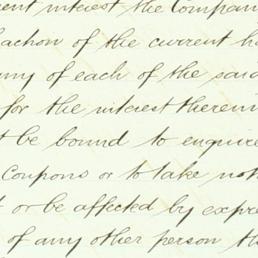 interest the Compan
of the current h
any of each of the said
for the interest therein
be bound to enquire
Coupons or to take not
or be affected by expre
of any other person th